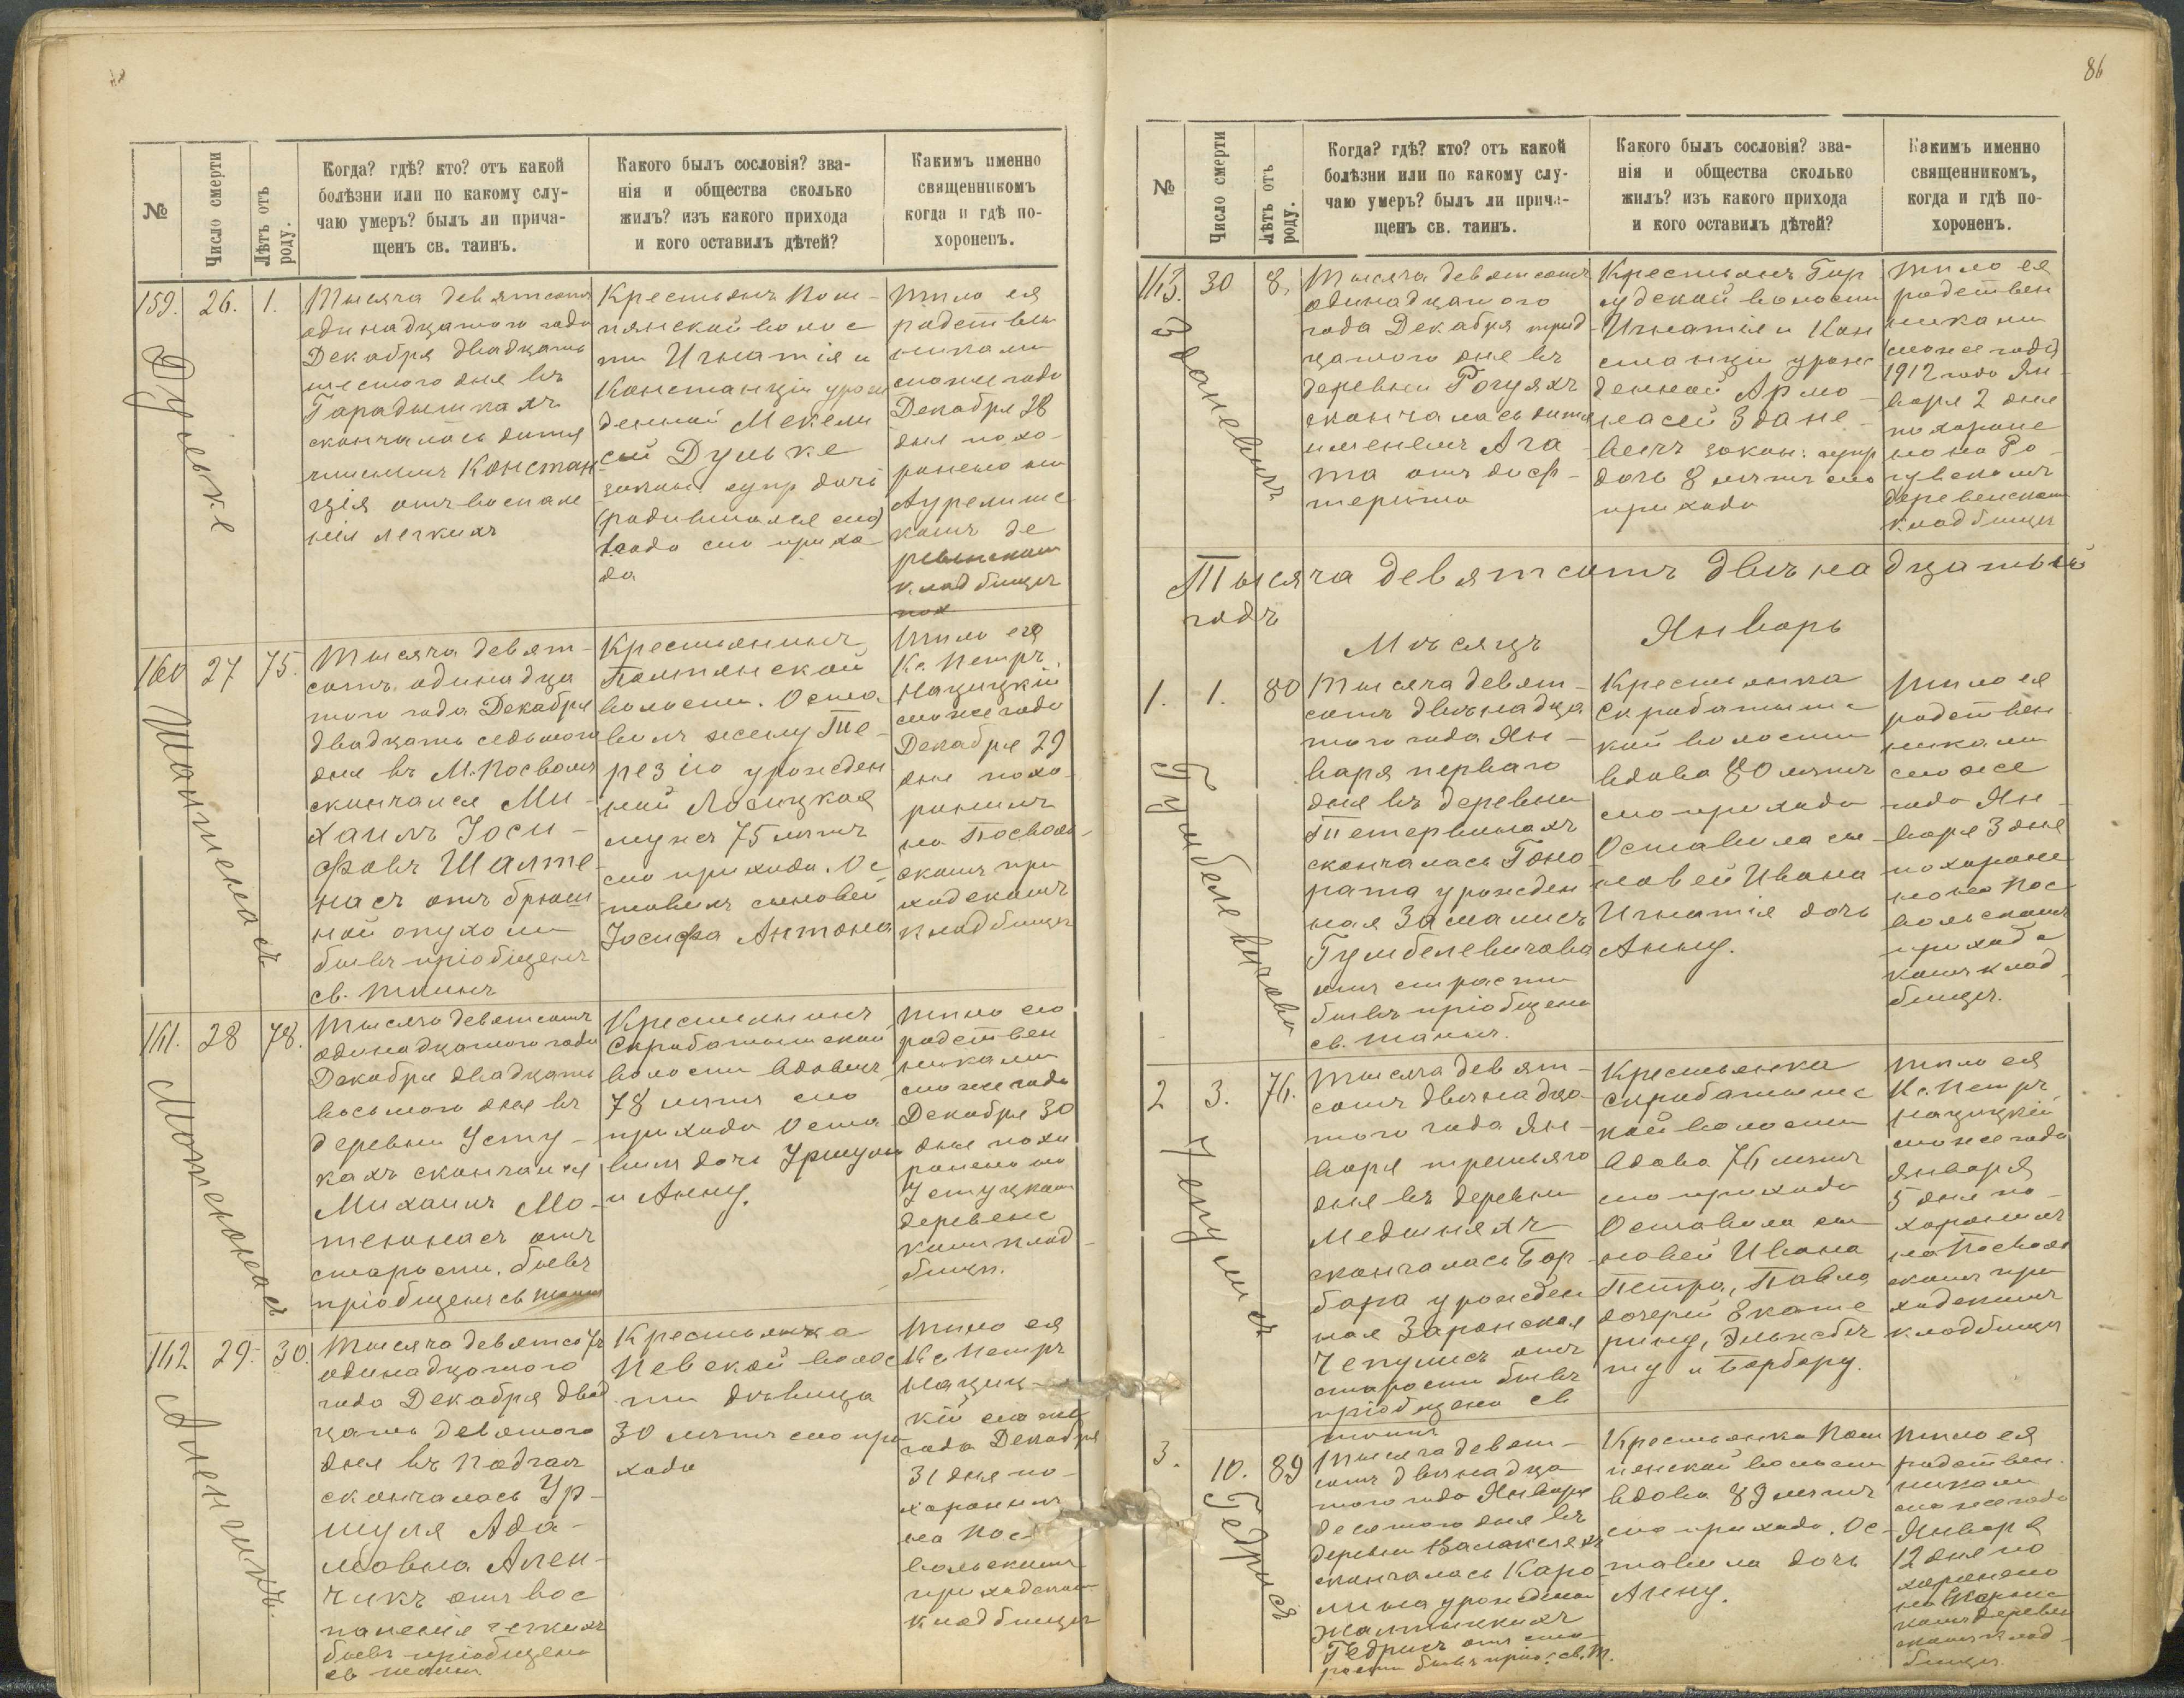 №
Число смерти
Лѣтъ отъ
роду.
Когда? гдѣ? кто? отъ какой
болѣзни или по какому слу-
чаю умеръ? былъ ли прича-
щенъ св. таинъ.
Какого былъ сословія? зва-
нія и общества сколько
жилъ? изъ какого прихода
и кого оставилъ дѣтей?
Какимъ именно
священникомъ
когда и гдѣ по-
хороненъ.
159.
26.
1.
Дульке
Тысяча девятсотъ
одинадцатого года
Декабря двадцать
шестого дня въ
Гарадышкахъ
скончалась дитя
именемъ Констан
ція отъ воспале
нія легкихъ
Крестьянъ Пом-
пянской волос
ти Игнатія и
Констанціи урож
денной Мекели
съй Дульке
закон. супр дочь
(родившаяся сего)
1 года сего прихо
да
Тѣло ея
родствен
никами
сего же года
Декабря 28
дня похо-
ронено на
Аурелишс
комъ де
ревенскомъ
кладбищѣ
пох
160
27
75.
Шалтенасъ
Тысяча девят-
сотъ одинадца
того года Декабря
двадцать седьмого
дня въ М. Посволѣ
скончался Ми-
хаилъ Іоси-
фовъ Шалте-
насъ отъ брюш
ной опухоли
бывъ пріобщенъ
св. таинъ
Крестьянинъ
Помпянской
волости. Оста
вилъ жену Те-
резію урожден
ной Лосицкая
мужъ 75 лѣтъ
сего прихода. Ос
тавилъ сыновей
Іосифа Антона
Тѣло его
Кс. Петръ
Нацицкій
сего же года
Декабря 29
дня похо-
ронилъ
на Посволь-
скомъ при
ходскомъ
кладбищѣ
161.
28
78.
Мотеюнасъ
Тысяча девятсотъ
одинадцатого года
Декабря двадцать
восьмого дня въ
деревни Усту-
кахъ скончался
Михаилъ Мо-
теюнасъ отъ
старости, бывъ
пріобщенъ св таинъ
Крестьянинъ
Скробатышской
волости вдовецъ
78 лѣтъ сего
прихода Оста
вилъ дочь Уршулю
и Анну.
Тѣло его
родствен
никами
сего же года
Декабря 30
дня похо
ронено на
Устуцкомъ
деревенс
комъ клад-
бищѣ.
162
29.
30.
Аленчикъ.
Тысяча девятсотъ
одинадцатого
года Декабря двад
цать девятого
дня въ Подгаи
скончалась Ур-
шуля Ада-
мовна Ален-
чикъ отъ вос
паленія легкихъ
бывъ пріобщена
св таинъ
Крестьянка
Невской волос
ти дѣвица
30 лѣтъ сего при
хода
Тѣло ея
Кс Петръ
Нациц-
кій сего же
года Декабря
31 дня по-
хоронилъ
на Пос-
вольскомъ
приходскомъ
кладбищѣ
86
№
Число смерти
Лѣтъ отъ
роду.
Когда? гдѣ? кто? отъ какой
болѣзни или по какому слу-
чаю умеръ? былъ ли прича-
щенъ св. таинъ.
Какого былъ сословія? зва-
нія и общества сколько
жилъ? изъ какого прихода
и кого оставилъ дѣтей?
Какимъ именно
священникомъ,
когда и гдѣ по-
хороненъ.
163.
30
8.
Зданевичъ
Тысяча девятсотъ
одинадцатого
года Декабря трид
цатого дня въ
деревни Рогуляхъ
скончалась дитя
именемъ Ага
та отъ диф-
терита
Крестьянъ Гир
судской волости
Игнатія и Кон
станціи урож
денной Армо-
насъй Здане-
вичъ закон. супр
дочь 8 лѣтъ сего
прихода
Тѣло ея
родствен
никами
(сего же года)
1912 года Ян-
варя 2 дня
похороне
но на Ро-
гувскомъ
деревенскомъ
кладбищѣ
Тысяча девятсотъ двѣнадцатый
годъ
Мѣсяцъ Январь
1.
1.
80
Гумбелевичова
Тысяча девят-
сотъ двѣнадца
того года Ян-
варя перваго
дня въ деревни
Тетервинахъ
скончалась Гоно
рата урожден
ная Замалисъ
Гумбелевичова
отъ старости
бывъ пріобщена
св. таинъ.
Крестьянка
Скробатышс
кой волости
вдова 80 лѣтъ
сего прихода
Оставила сы-
новей Ивана
Игнатія дочь
Анну.
Тѣло ея
родствен
никами
сего же
года Ян-
варя 3 дня
похороне
но на Пос
вольскомъ
приходс
комъ клад-
бищѣ.
2
3.
76.
Чепулисъ
Тысяча девят-
сотъ двѣнадца-
того года Ян-
варя третьяго
дня въ деревни
Медшняхъ
скончалась Бар
бара урожден
ная Заронская
Чепулисъ отъ
старости бывъ
пріобщена св
таинъ
Крестьянка
Скробатышс
кой волости
вдова 76 лѣтъ
сего прихода
Оставила сы
новей Ивана
Петра, Павла
дочерей Екате
рину, Эльжбе
ту и Барбару.
Тѣло ея
Кс. Петръ
Нацицкій
сего же года
Января
5 дня по-
хоронилъ
на Посволь
скомъ при
ходскомъ
кладбищѣ
3.
10.
89
Гедрисъ
Тысяча девят-
сотъ двѣнадца
того года Января
десятого дня въ
деревни Валакеляхъ
скончалась Каро
лина урожденная
Гедрисъ отъ ста
рости бывъ пріо: св. т.
Крестьянка Пом
пянской волости
вдова 89 лѣтъ
сего прихода. Ос-
тавила дочь
Анну.
Тѣло ея
родствен
никами
сего же года
Января
12 дня по
хоронено
комъ деревен
скомъ клад-
бищѣ.